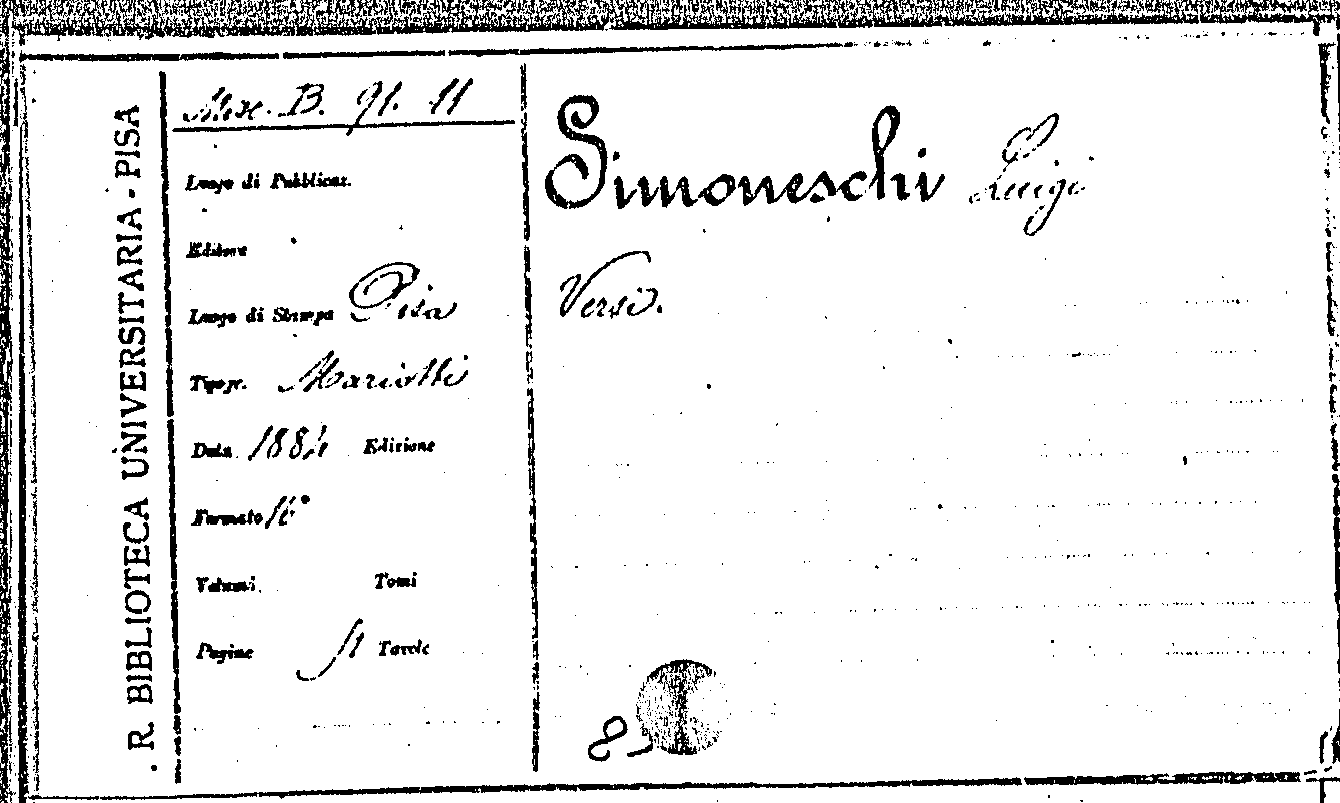 R. BIBLIOTECA UNIVERSITARIA - PISA
Misc. B. 91. 11
Luogo di Pubblicaz.
Editore
Luogo di Stampa Pisa
Tipogr. Mariotti
Data 1884 Edizione
Formato 16°
Volumi Tomi
Pagine Tavole
Simoneschi Luigi
Versi.